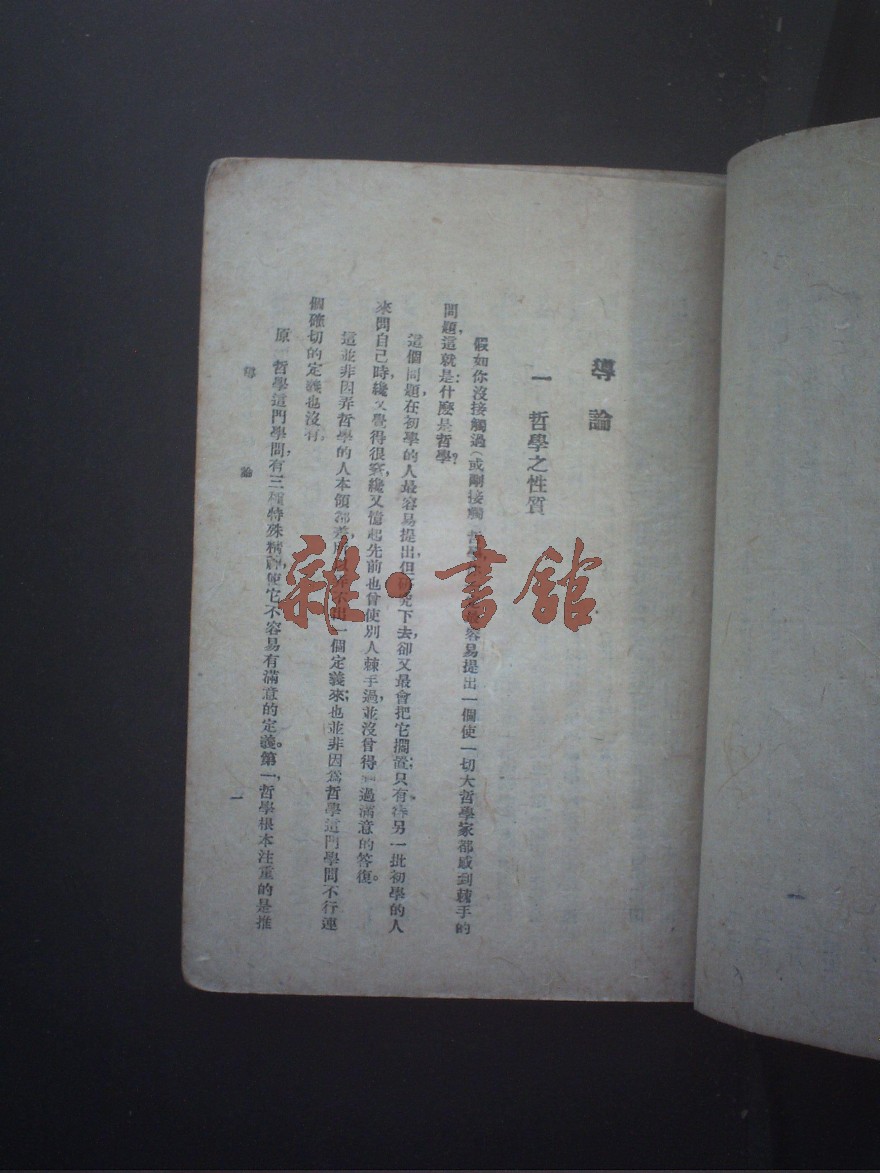 導論
一　哲學之性質
假如你沒接觸過(或剛接觸 哲學 容易提出一個使一切大哲學家都感到棘手的
問題,這就是:什麼是哲學?
這個問題在初學的人最容易提出,但研究下去,卻又最會把它擱置;只有 另一批初學的人
來問自己時,纔又覺得很窘,纔又憶起先前也曾使別人棘手過,並沒曾得 過滿意的答復。
這並非因弄哲學的人本領都差,所以弄不出一個定義來;也並非因為哲學這門學問不行,連
個確切的定義也沒有,
原 哲學這門學問,有三 特殊精神,使它不容易有滿意的定義。第一,哲學根本注重的是推
導　論
一
雜·書館